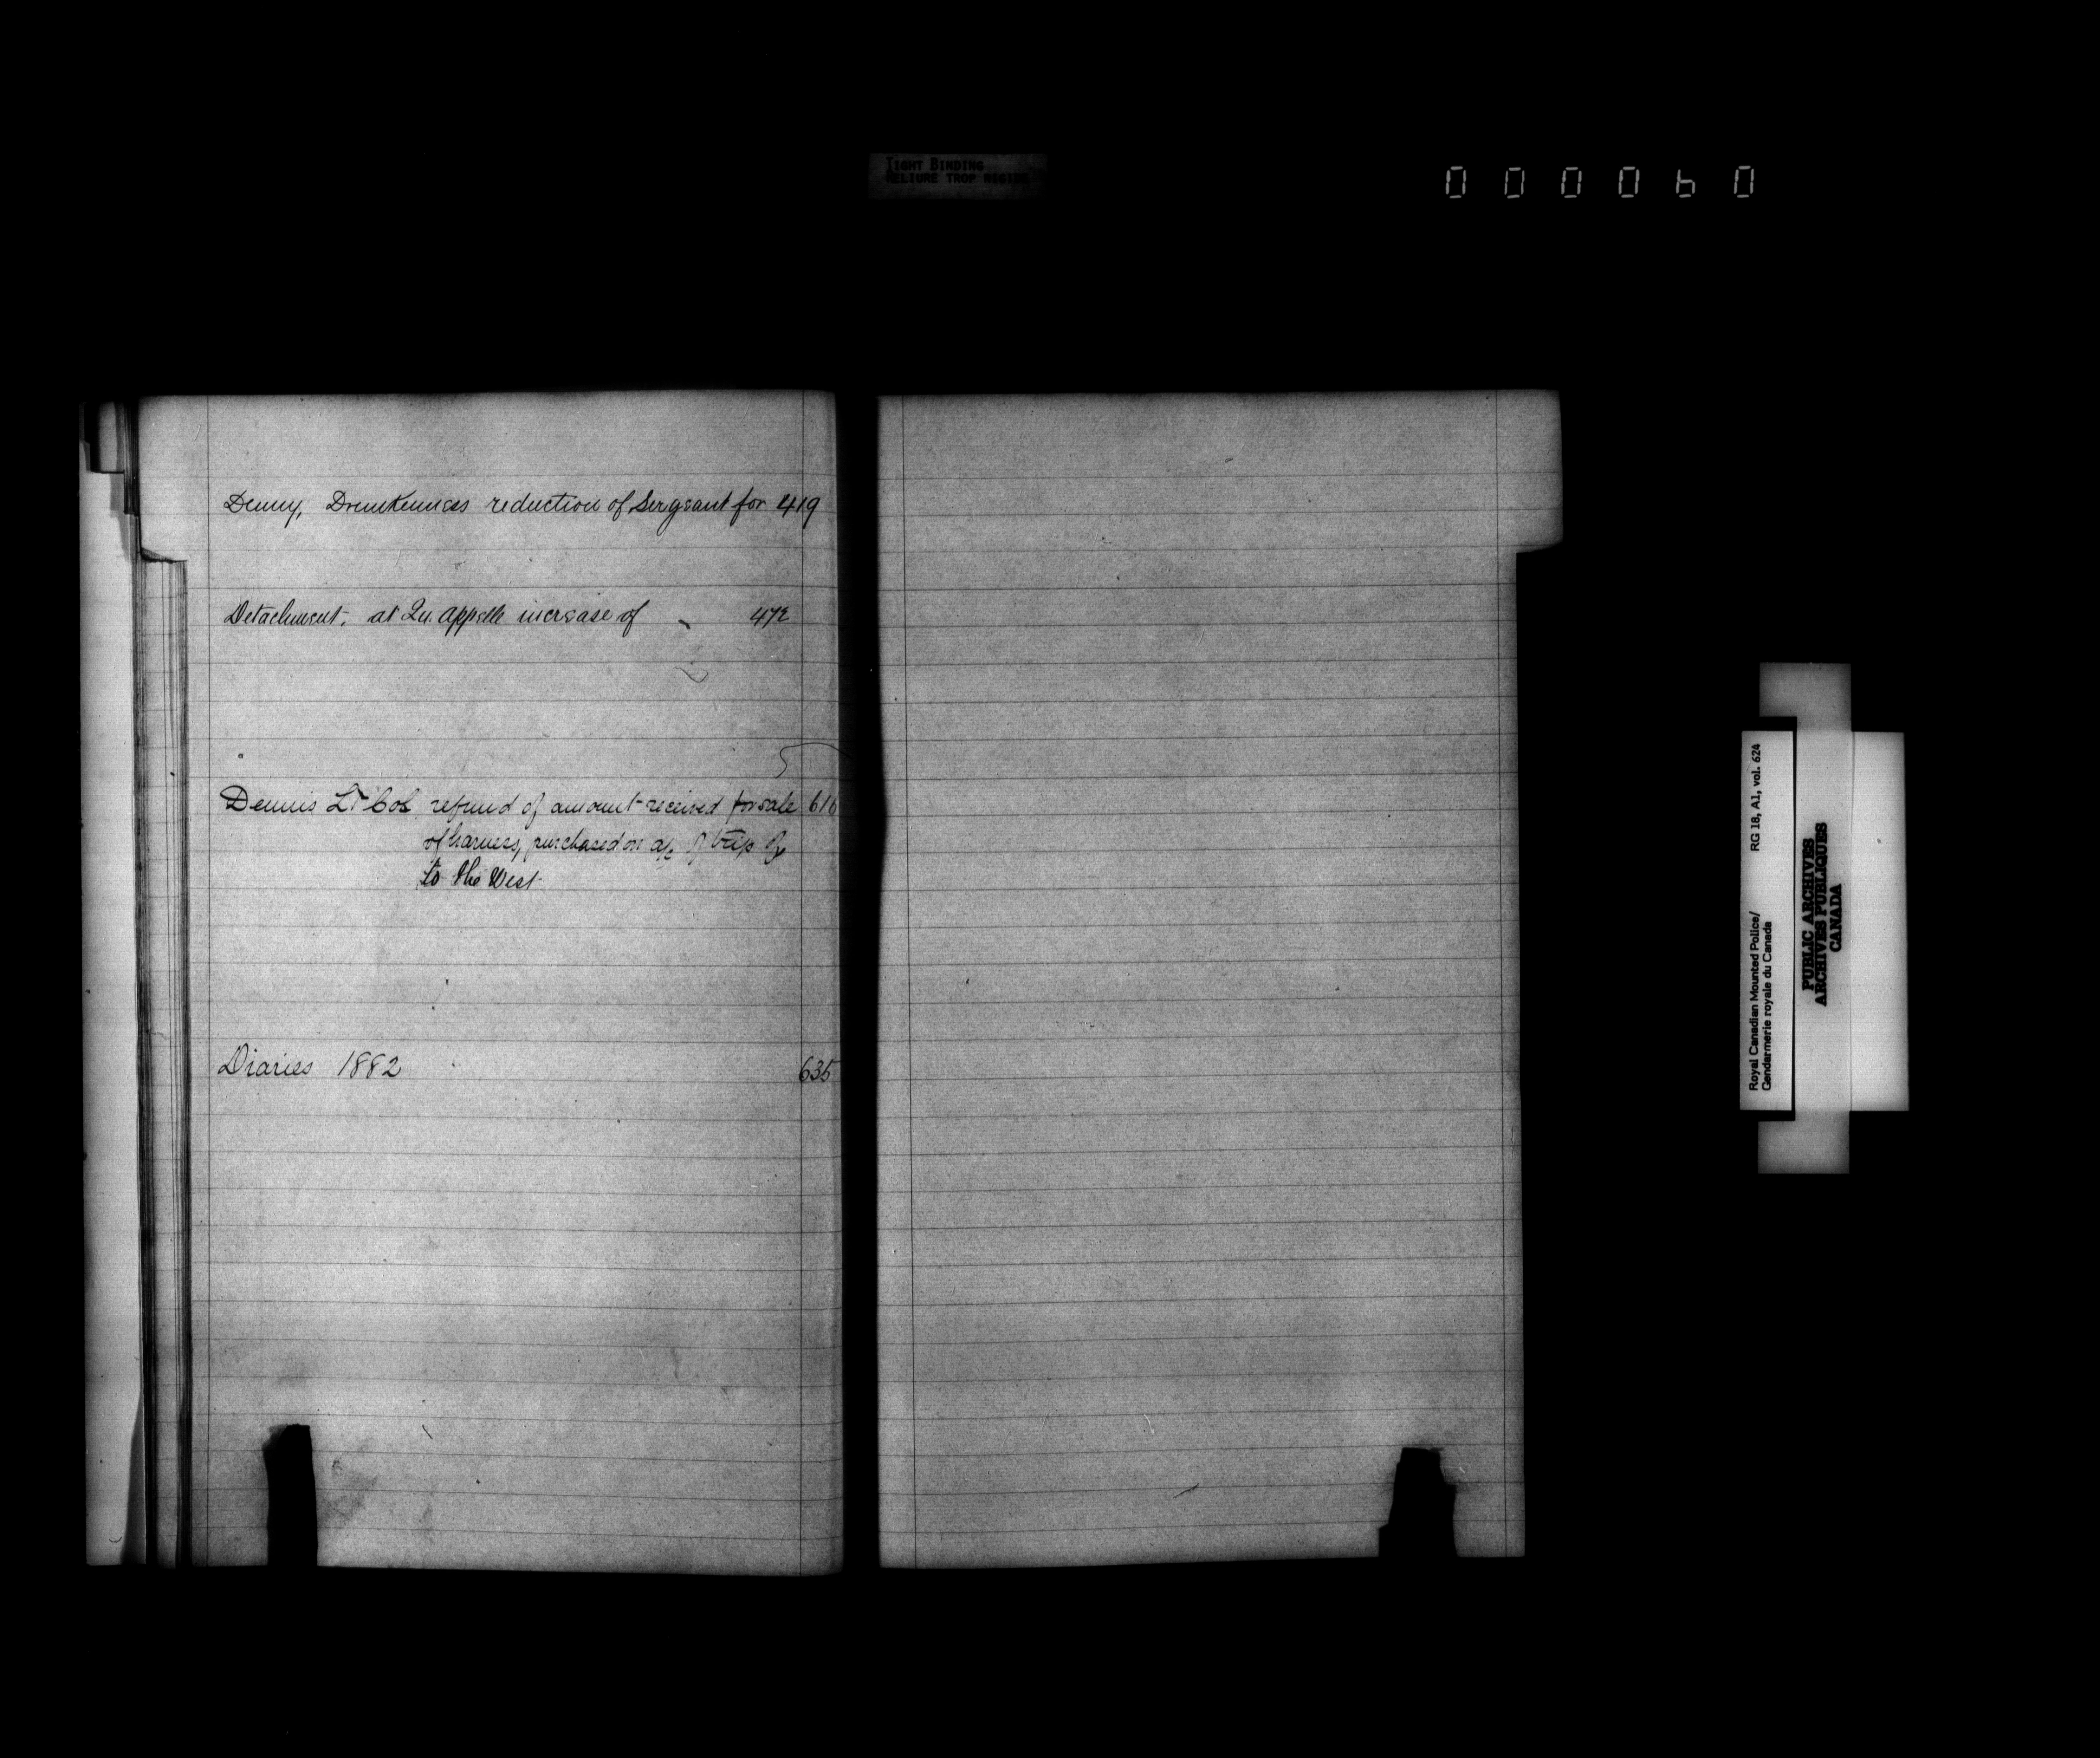 TIGHT BINDING
RELIURE TROP
000060
Denny, Drunkenness reduction of Sergeant for 419
Detachment. at Qu'appelle increase of 472
Dennis Lt Col. refund of amount received for sale 616
of harness, purchased on a/c of trip of
to the West
Diaries 1882 635
Royal Canadian Mounted Police/ RG 18, A1, vol. 624
Gendarmerie royale du Canada
PUBLIC ARCHIVES
ARCHIVES PUBLIQUES
CANADA